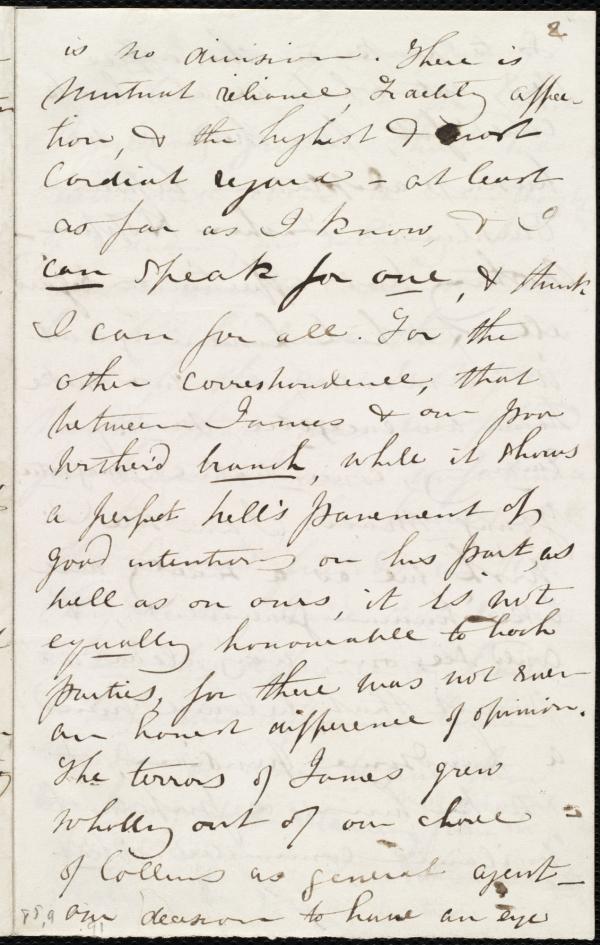 2
is no division. There is
mutual reliance, fidelity affec-
tion, & the highest & most
cordial regard - at least
as far as I know, & I
can speak for one, & think
I can for all. For the
other correspondence, that
between James & our poor
wither'd branch, while it shows
a perfect hell's pavement of
good intentions on his part, as
well as on ours, it is not
equally honourable to both
parties, for there was not even
an honest difference of opinion.
The terrors of James grew
wholly out of our choice
of Collins as general agent -
our decision to have an eye